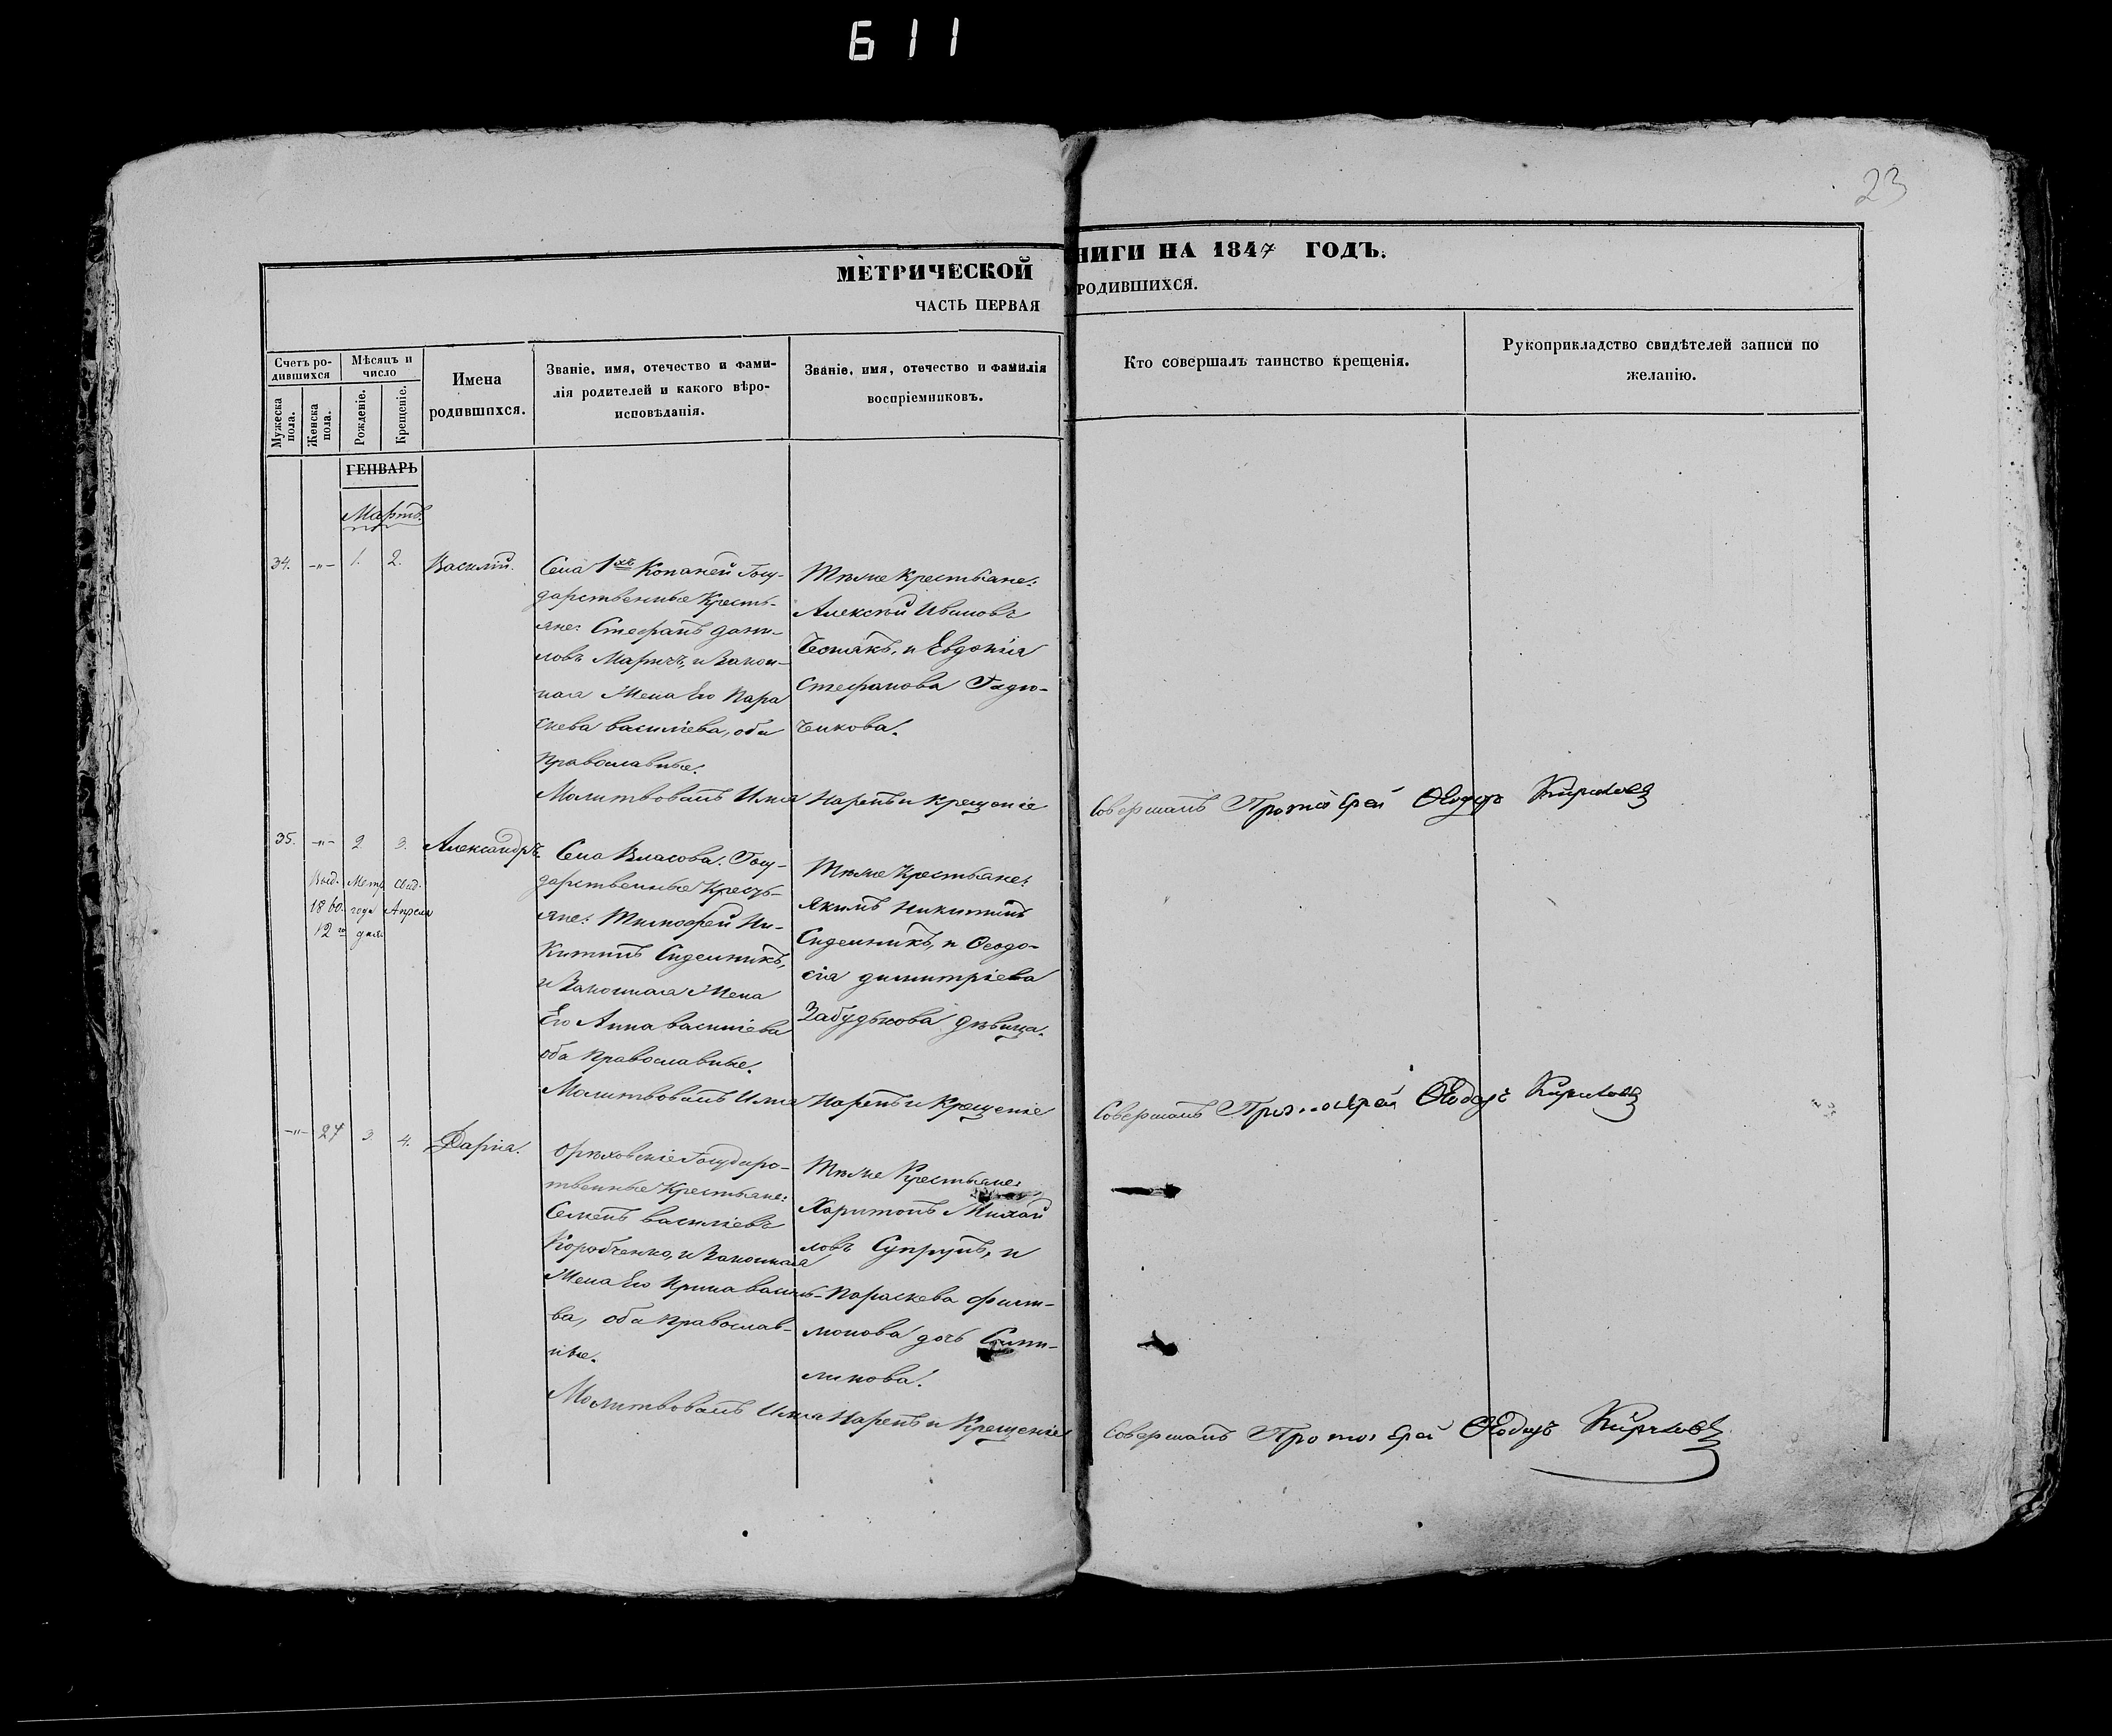 611
23
МЕТРИЧЕСКОЙ
НИГИ НА 1847 ГОДЪ.
ЧАСТЬ ПЕРВАЯ
РОДИВШИХСЯ.
Счетъ ро-
дившихся
Мужеска пола.
Женска пола.
Мѣсяцъ и
число
Рожденіе.
Крещеніе.
Имена
родившихся.
Званіе, имя, отечество и фами-
лія родителей и какого вѣро-
исповѣданія.
Званіе, имя, отечество и фамилія
воспріемниковъ.
Кто совершалъ таинство крещенія.
Рукоприкладство свидѣтелей записи по
желанію.
ГЕНВАРЬ
Мартъ.
34. -"- 1. 2. Василій.
Села 1хъ Копаней Госу-
дарственные Кресть-
яне: Стефанъ Дани-
ловъ Маричъ, и Закон-
ная Жена Его Пара
скева Василіева, оба
Православные.
Тѣже Крестьяне:
Алексѣй Ивановъ
и Евдокія
Стефанова Гадю-
чикова.
Молитвовалъ Имя Нарекъ и Крещеніе
Совершалъ Протоіерей Ѳеодоръ Кириловъ
35. -"- 2. 3. Александръ.
Выд. Метр. свид.
1860. года Апреля
12го дня
Села Власова. Госу-
дарственные Кресть-
яне: Тимофей Ни-
китинъ Сиденникъ,
и Законная Жена
Его Анна Василіева
оба Православные.
Тѣже Крестьяне:
Якимъ Никитинъ
Сиденникъ, и Ѳеодо-
сія Димитріева
Забудькова дѣвица.
Молитвовалъ Имя Нарекъ и Крещеніе
Совершалъ Протоіерей Ѳеодоръ Кириловъ
-"- 27 3. 4. Дарія.
Орѣховскіе Государс-
твенные Крестьяне:
Семенъ Василіевъ
Коробченко, и Законная
Жена Его Ирина Василь-
ва, оба Православ-
ные.
Тѣже Крестьяне:
Харитонъ Михай
ловъ Супрунъ, и
Параскева Фили-
монова дочь
Молитвовалъ Имя Нарекъ и Крещеніе
Совершалъ Протоіерей Ѳеодоръ Кириловъ